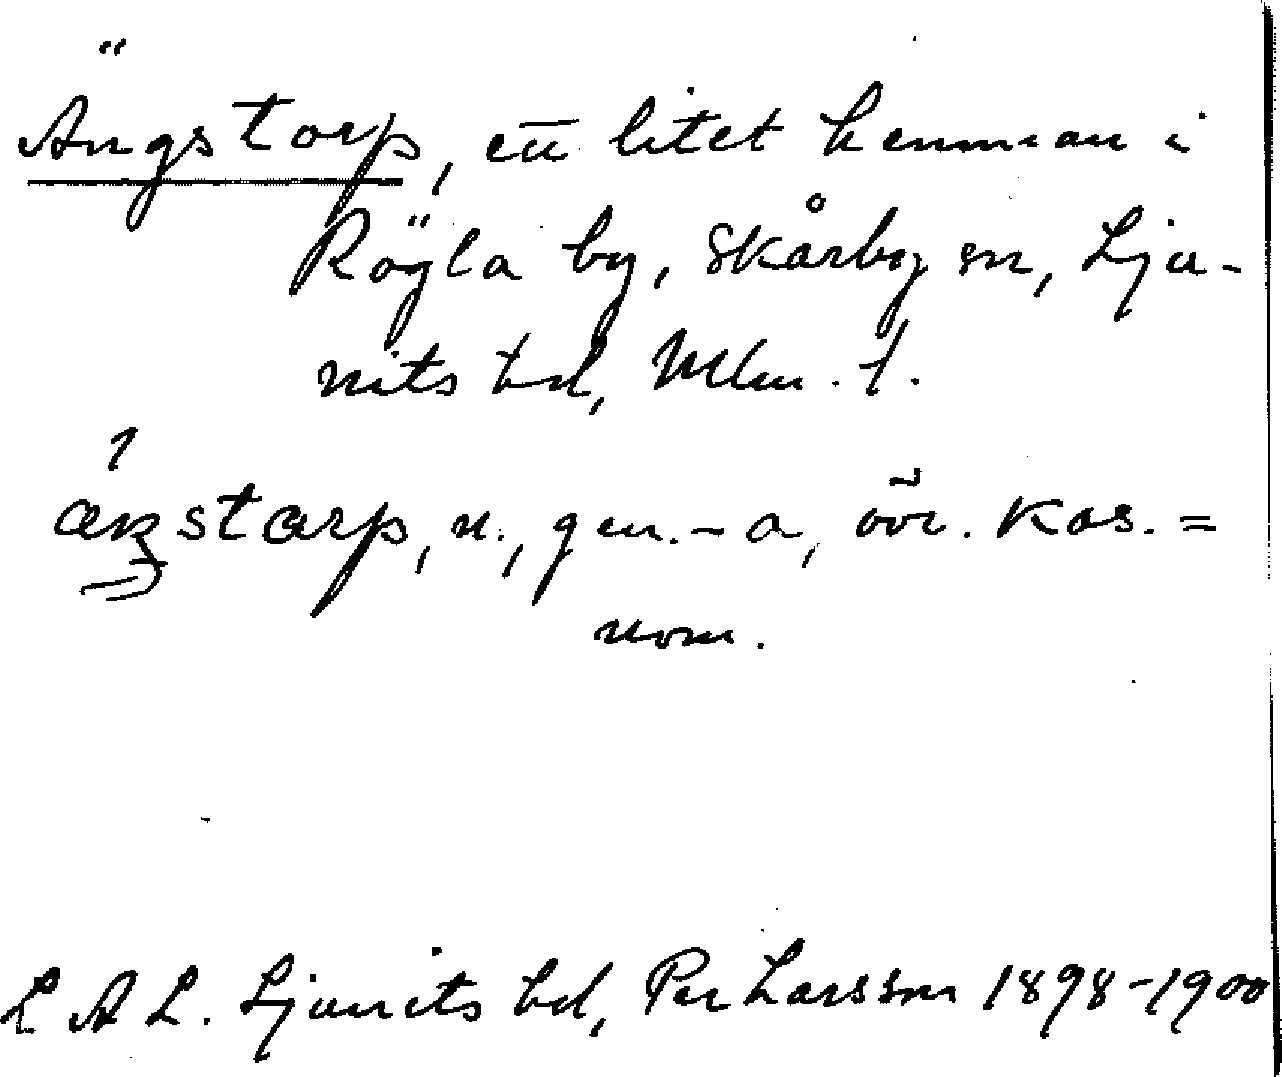 Ängstorp, ett litet hemman i
Rögla by, Skårby sn, Lju-
nits hd, Mlm. l.
äŋstarp, n., gen. - a, övr. kas. =
nom.
L A L. Ljunits hd, Per Larsson 1898-1900